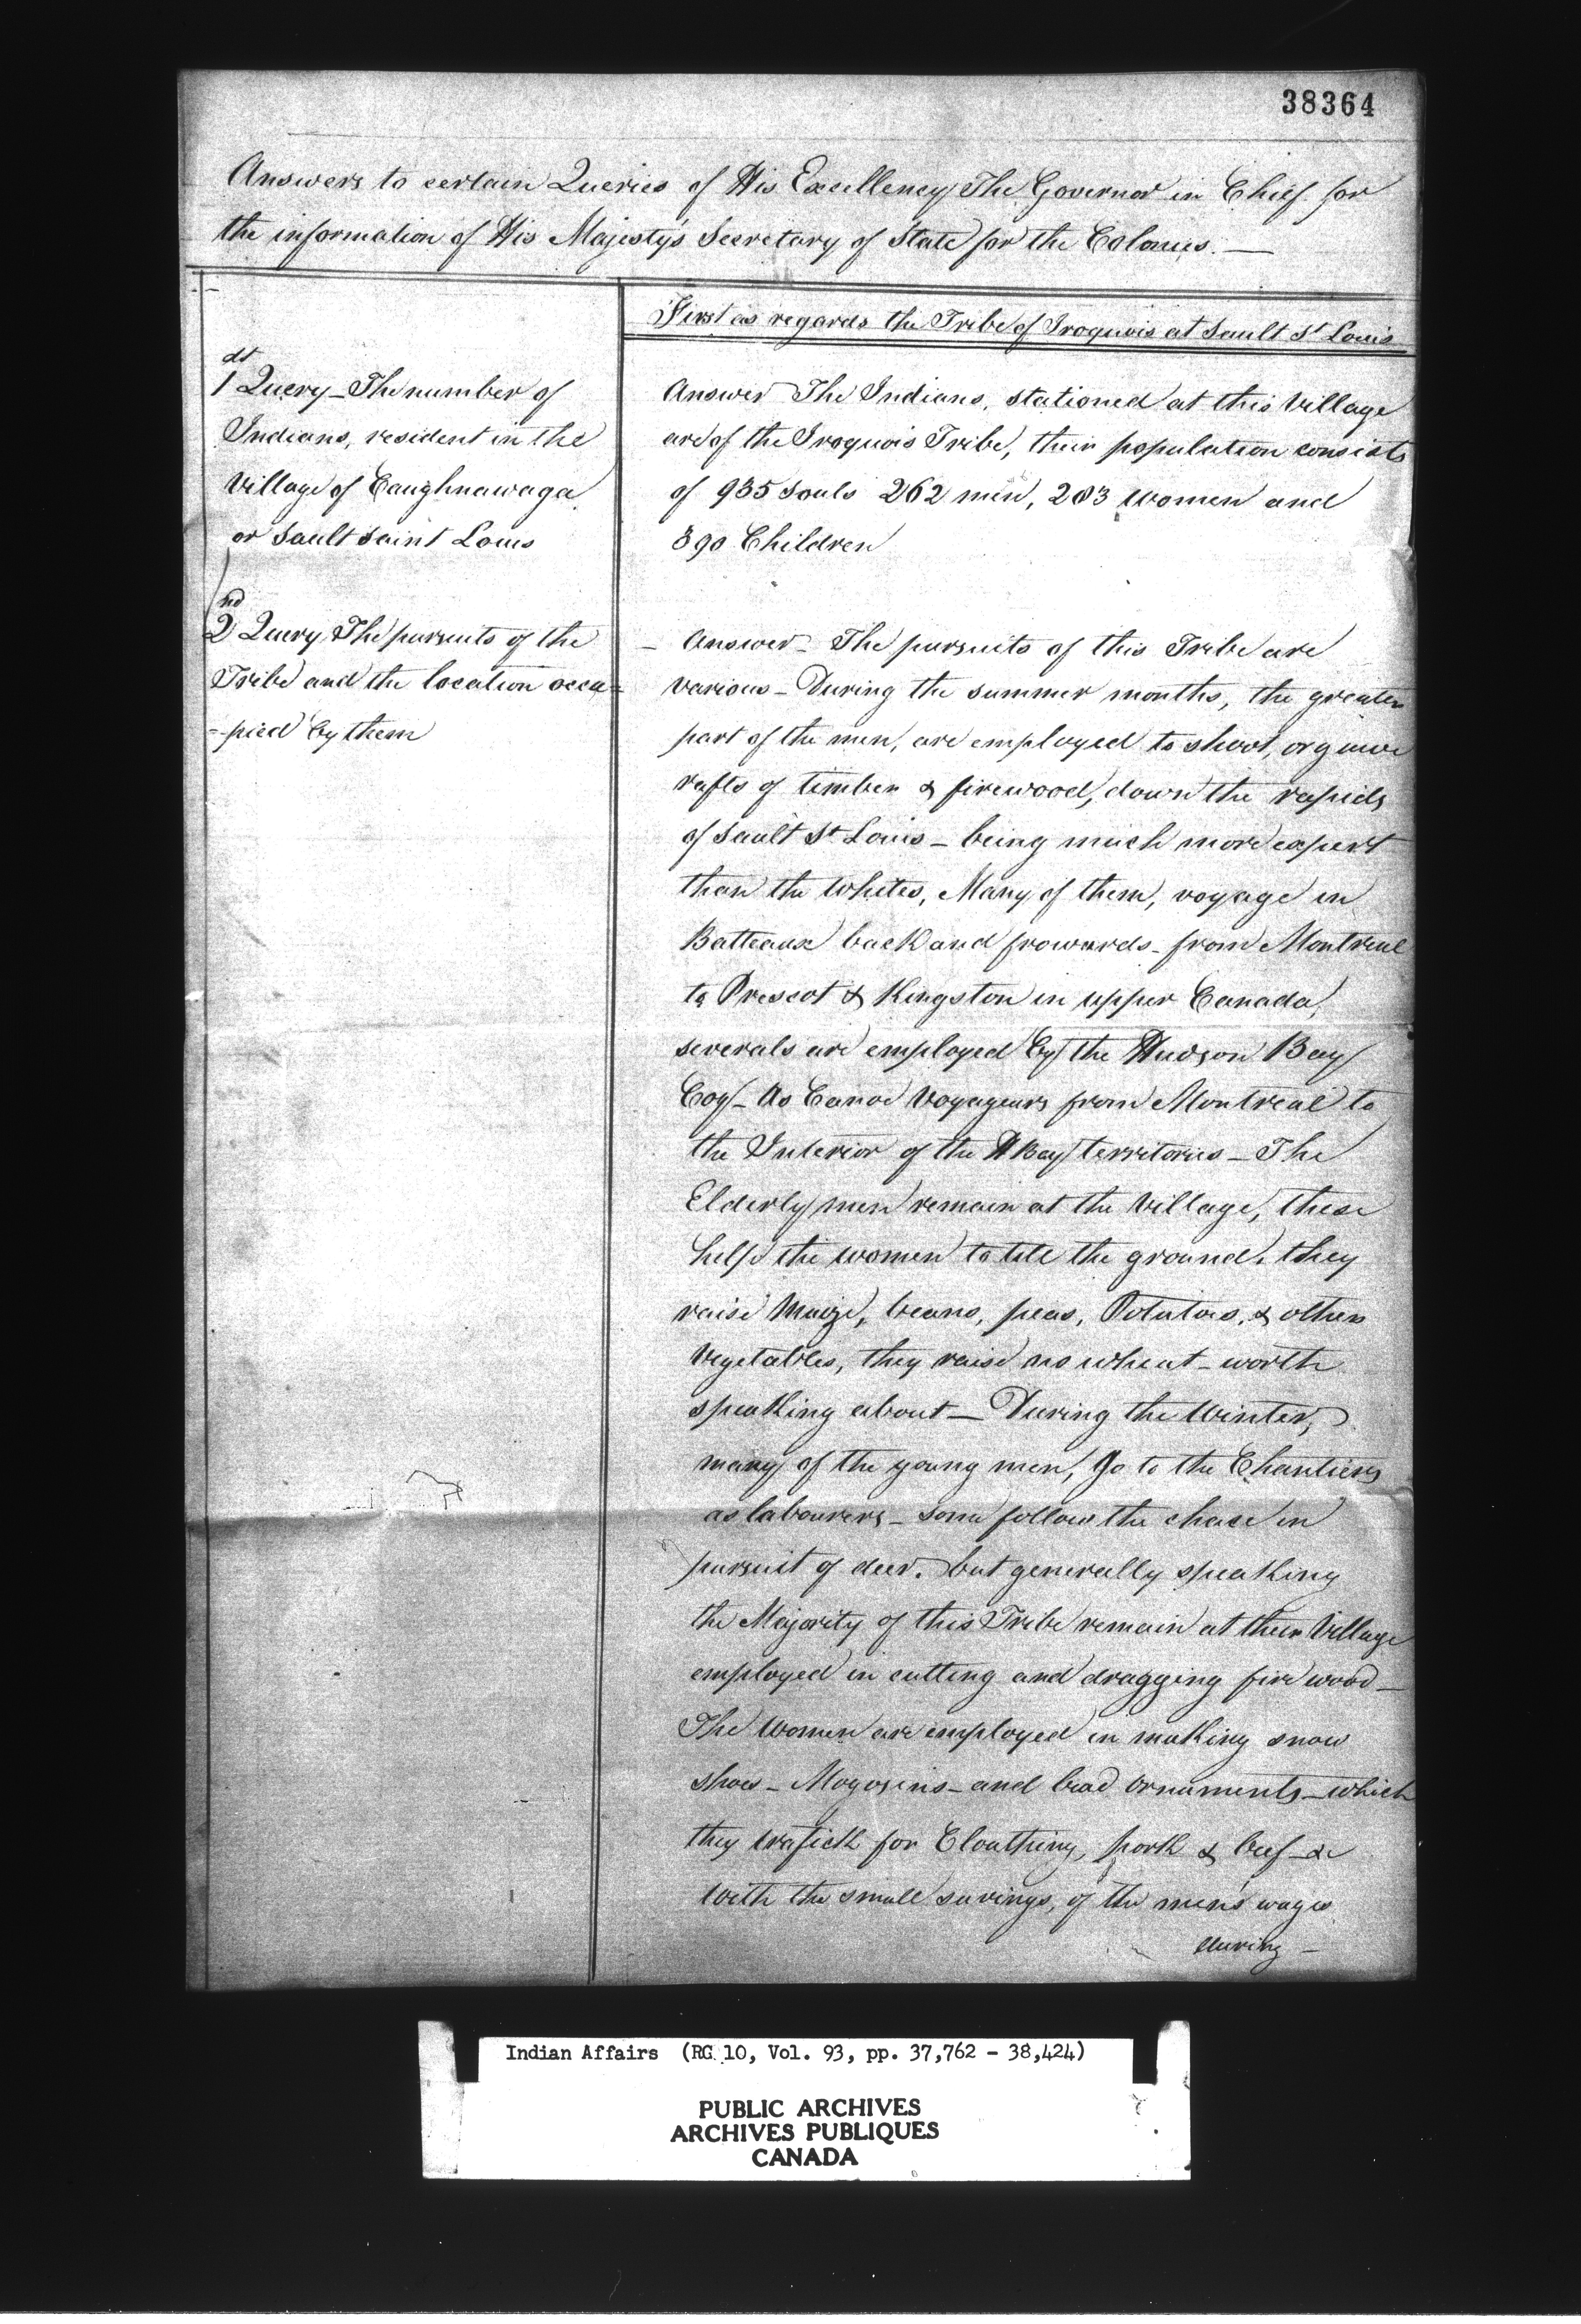 38364
Answers to certain Queries of His Excellency The Governor in Chief for
the information of His Majesty's Secretary of State for the Colonies. —
First as regards the Tribe of Iroquois at Sault St Louis
1st Query – The number of
Indians, resident in the
Village of Caughnawaga
or Sault Saint Louis
Answer The Indians, stationed at this Village
are of the Iroquois Tribe, their population consists
of 935 Souls 262 men, 283 women and
390 Children
2nd Query The pursuits of the
Tribe and the location occu=
=pied by them
– Answer – The pursuits of this Tribe are
various – During the summer months, the greater
part of the men, are employed to shoot, or guide
rafts of timber & firewood, down the rapids
of Sault St Louis – being much more expert
than the Whites, Many of them, voyage in
Batteaux back and frowards – from Montreal
to Prescot & Kingston in upper Canada,
severals are employed by the Hudson Bay
Coy – As Canoe Voyageurs from Montreal to
the Interior of the H Bay territories – The
Elderly men remain at the Village, these
help the women to till the ground, they
raise Maize, beans, peas, Potatoes, & other
Vegetables, they raise no wheat – worth
speaking about – During the Winter,
many of the young men, go to the Chantiers
as labourers – some follow the chace in
pursuit of deer. but generally speaking
the Majority of this Tribe remain at their Village
employed in cutting and dragging fire wood –
The Women are employed in making snow
shoes – Mogosins – and bead ornaments – which
they trafick for Cloathing, pork & beef – &c
With the small savings, of the men's wages
during –
Indian Affairs (RG 10, Vol. 93, pp. 37,762 - 38,424)
PUBLIC ARCHIVES
ARCHIVES PUBLIQUES
CANADA